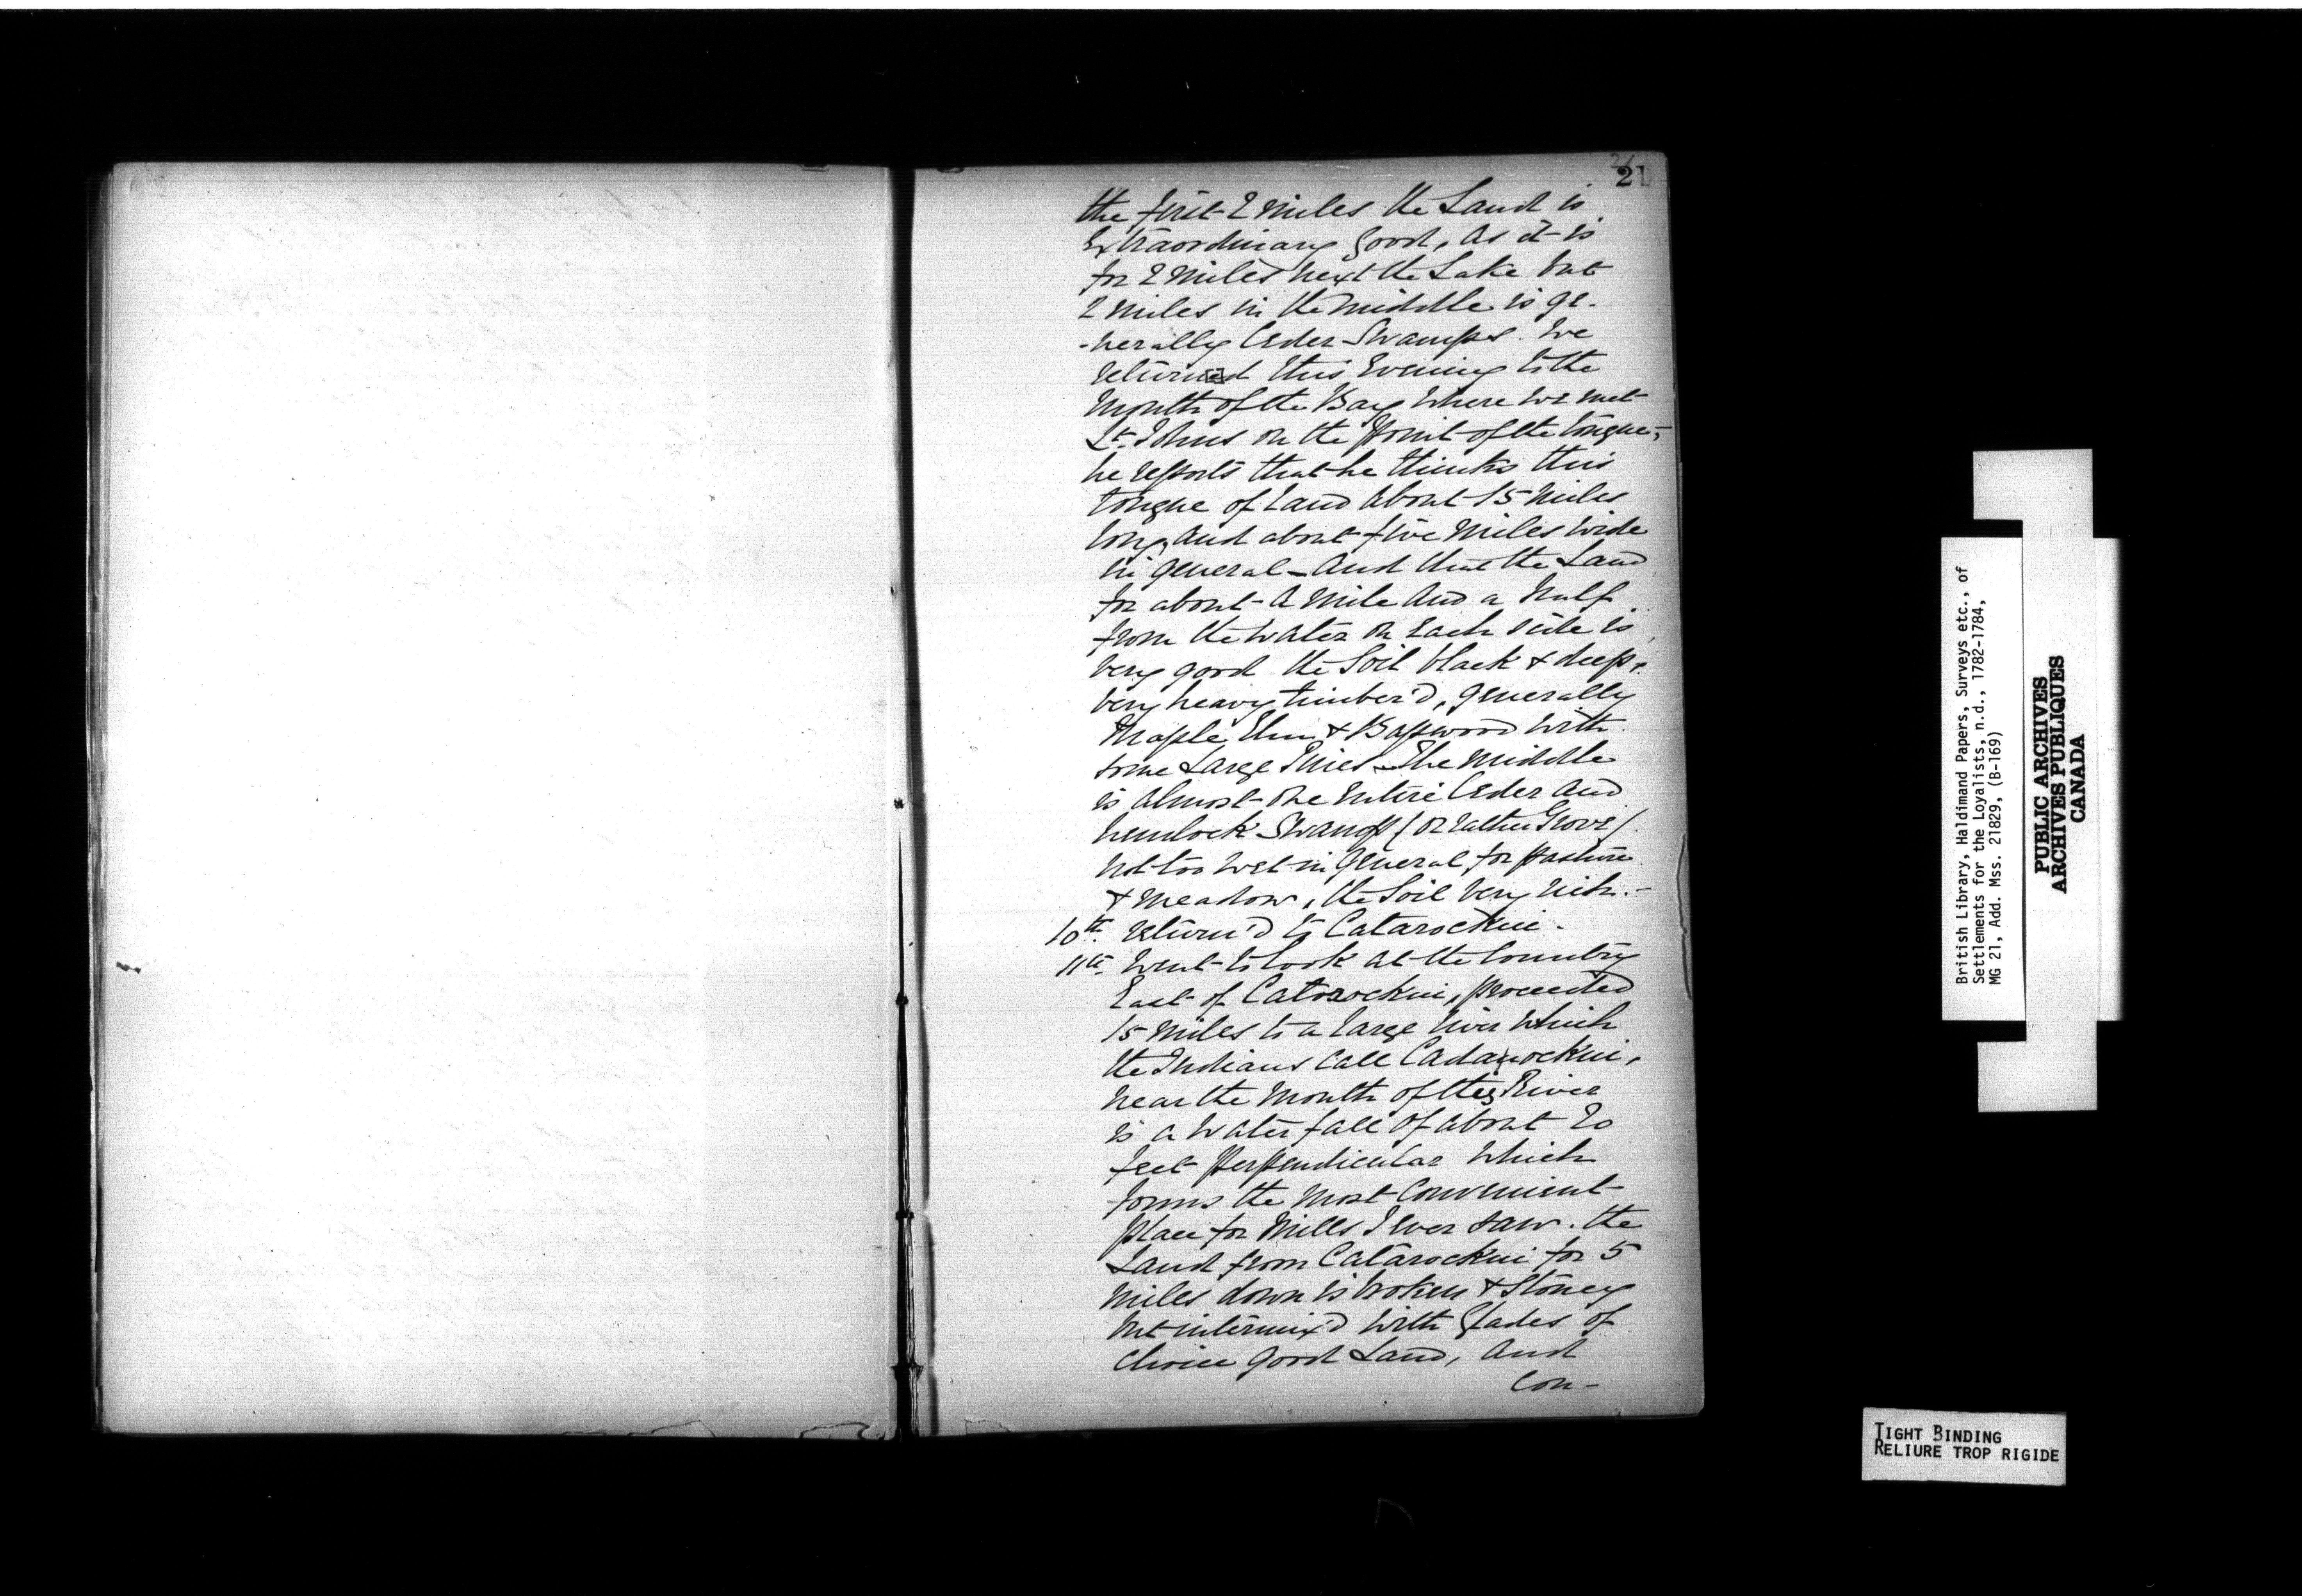 21
21
the first 2 miles the Land is
Extraordinary good, as it is
for 2 miles next the Lake but
2 miles in the middle is ge-
-nerally Ceder Swamps. We
return[e]d this Evening to the
Mouth of the Bay where we met
Lt. Johns on the point of the tongue,
he reports that he thinks this
tongue of Land about 15 Miles
long, and about five Miles wide
in general - And that the Land
for about a Mile and a half
from the water on Each side is
very good the Soil black & deep,
very heavy timber'd, generally
Maple, Elm & Basswood with
some Large Pines - The middle
is almost one entire Ceder and
hemlock Swamp (or rather Grove)
not too wet in general for pasture
& meadow, the Soil very rich.-
10th. return'd to Catarockui.
11th. Went to look at the Country
East of Catarockui, proceeded
15 miles to a large River which
the Indians call Cadanockui,
near the Mouth of this River
is a water fall of about 20
feet perpendicular which
forms the most Convenient
place for Mills I ever saw. the
Land from Catarockui for 5
miles down is broken & Stoney
but intermix'd with Glades of
choice good Land, and
Con-
British Library, Haldimand Papers, Surveys etc., of
Settlements for the Loyalists, n.d., 1782-1784,
MG 21, Add. Mss. 21829, (B-169)
PUBLIC ARCHIVES
ARCHIVES PUBLIQUES
CANADA
TIGHT BINDING
RELIURE TROP RIGIDE